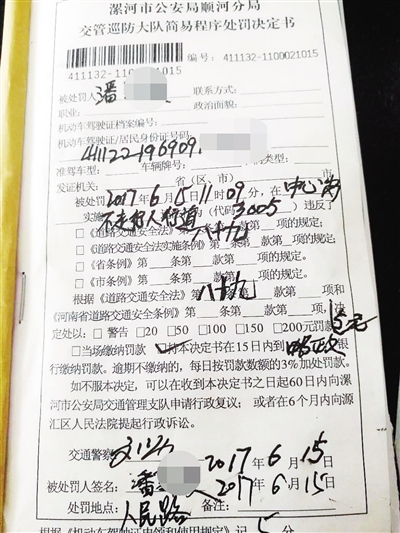 漯河市公安局顺河分局
交管巡防大队简易程序处罚决定书
编号:411132-1100021015
411132-1100021015
被处罚人:潘 联系方式:
职业: 政治面貌:
机动车驾驶证档案编号:
机动车驾驶证/居民身份证号码
41122-196909
准驾车型: 车辆牌号: 类型:
发证机关: 省(区、市) 市
被处罚 2017年6月15日11时09分,在
实施 不走行人行道 (代码3005)违反了
□《道路交通安全法》第八十九条第 款第 项的规定;
□《道路交通安全法实施条例》第 条第 款第 项的规定;
□《省条例》第 条第 款第 项的规定;
□《市条例》第 条第 款第 项的规定。
根据《道路交通安全法》第八十九条第 款第 项
和《河南省道路交通安全条例》第 条第 款第 项,决
定处以:□警告 □20 □50 □100 □150 □200元罚款 5元
□当场缴纳罚款 持本决定书在15日内到 银
行缴纳罚款。逾期不缴纳的,每日按罚款数额的3%加处罚款。
如不服本决定,可以在收到本决定书之日起60日内向漯
河市公安局交通管理支队申请行政复议;或者在6个月内向源
汇区人民法院提起行政诉讼。
交通警察: 2017年6月15日
被处罚人签名:潘 2017年6月15日
处罚地点:人民路 备注:
根据《机动车驾驶证申领和使用规定》记 5 分